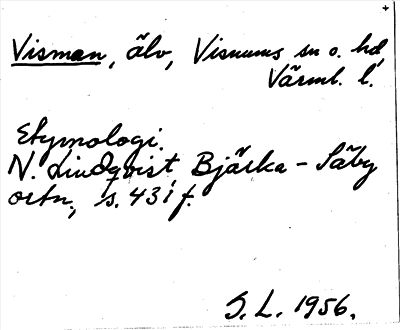 Visman, älv, Visnums sn o. hd,
Värml. l.
Etymologi.
N. Lindqvist, Bjärka-Säby
ortn., s. 431 f.
S.L. 1956.